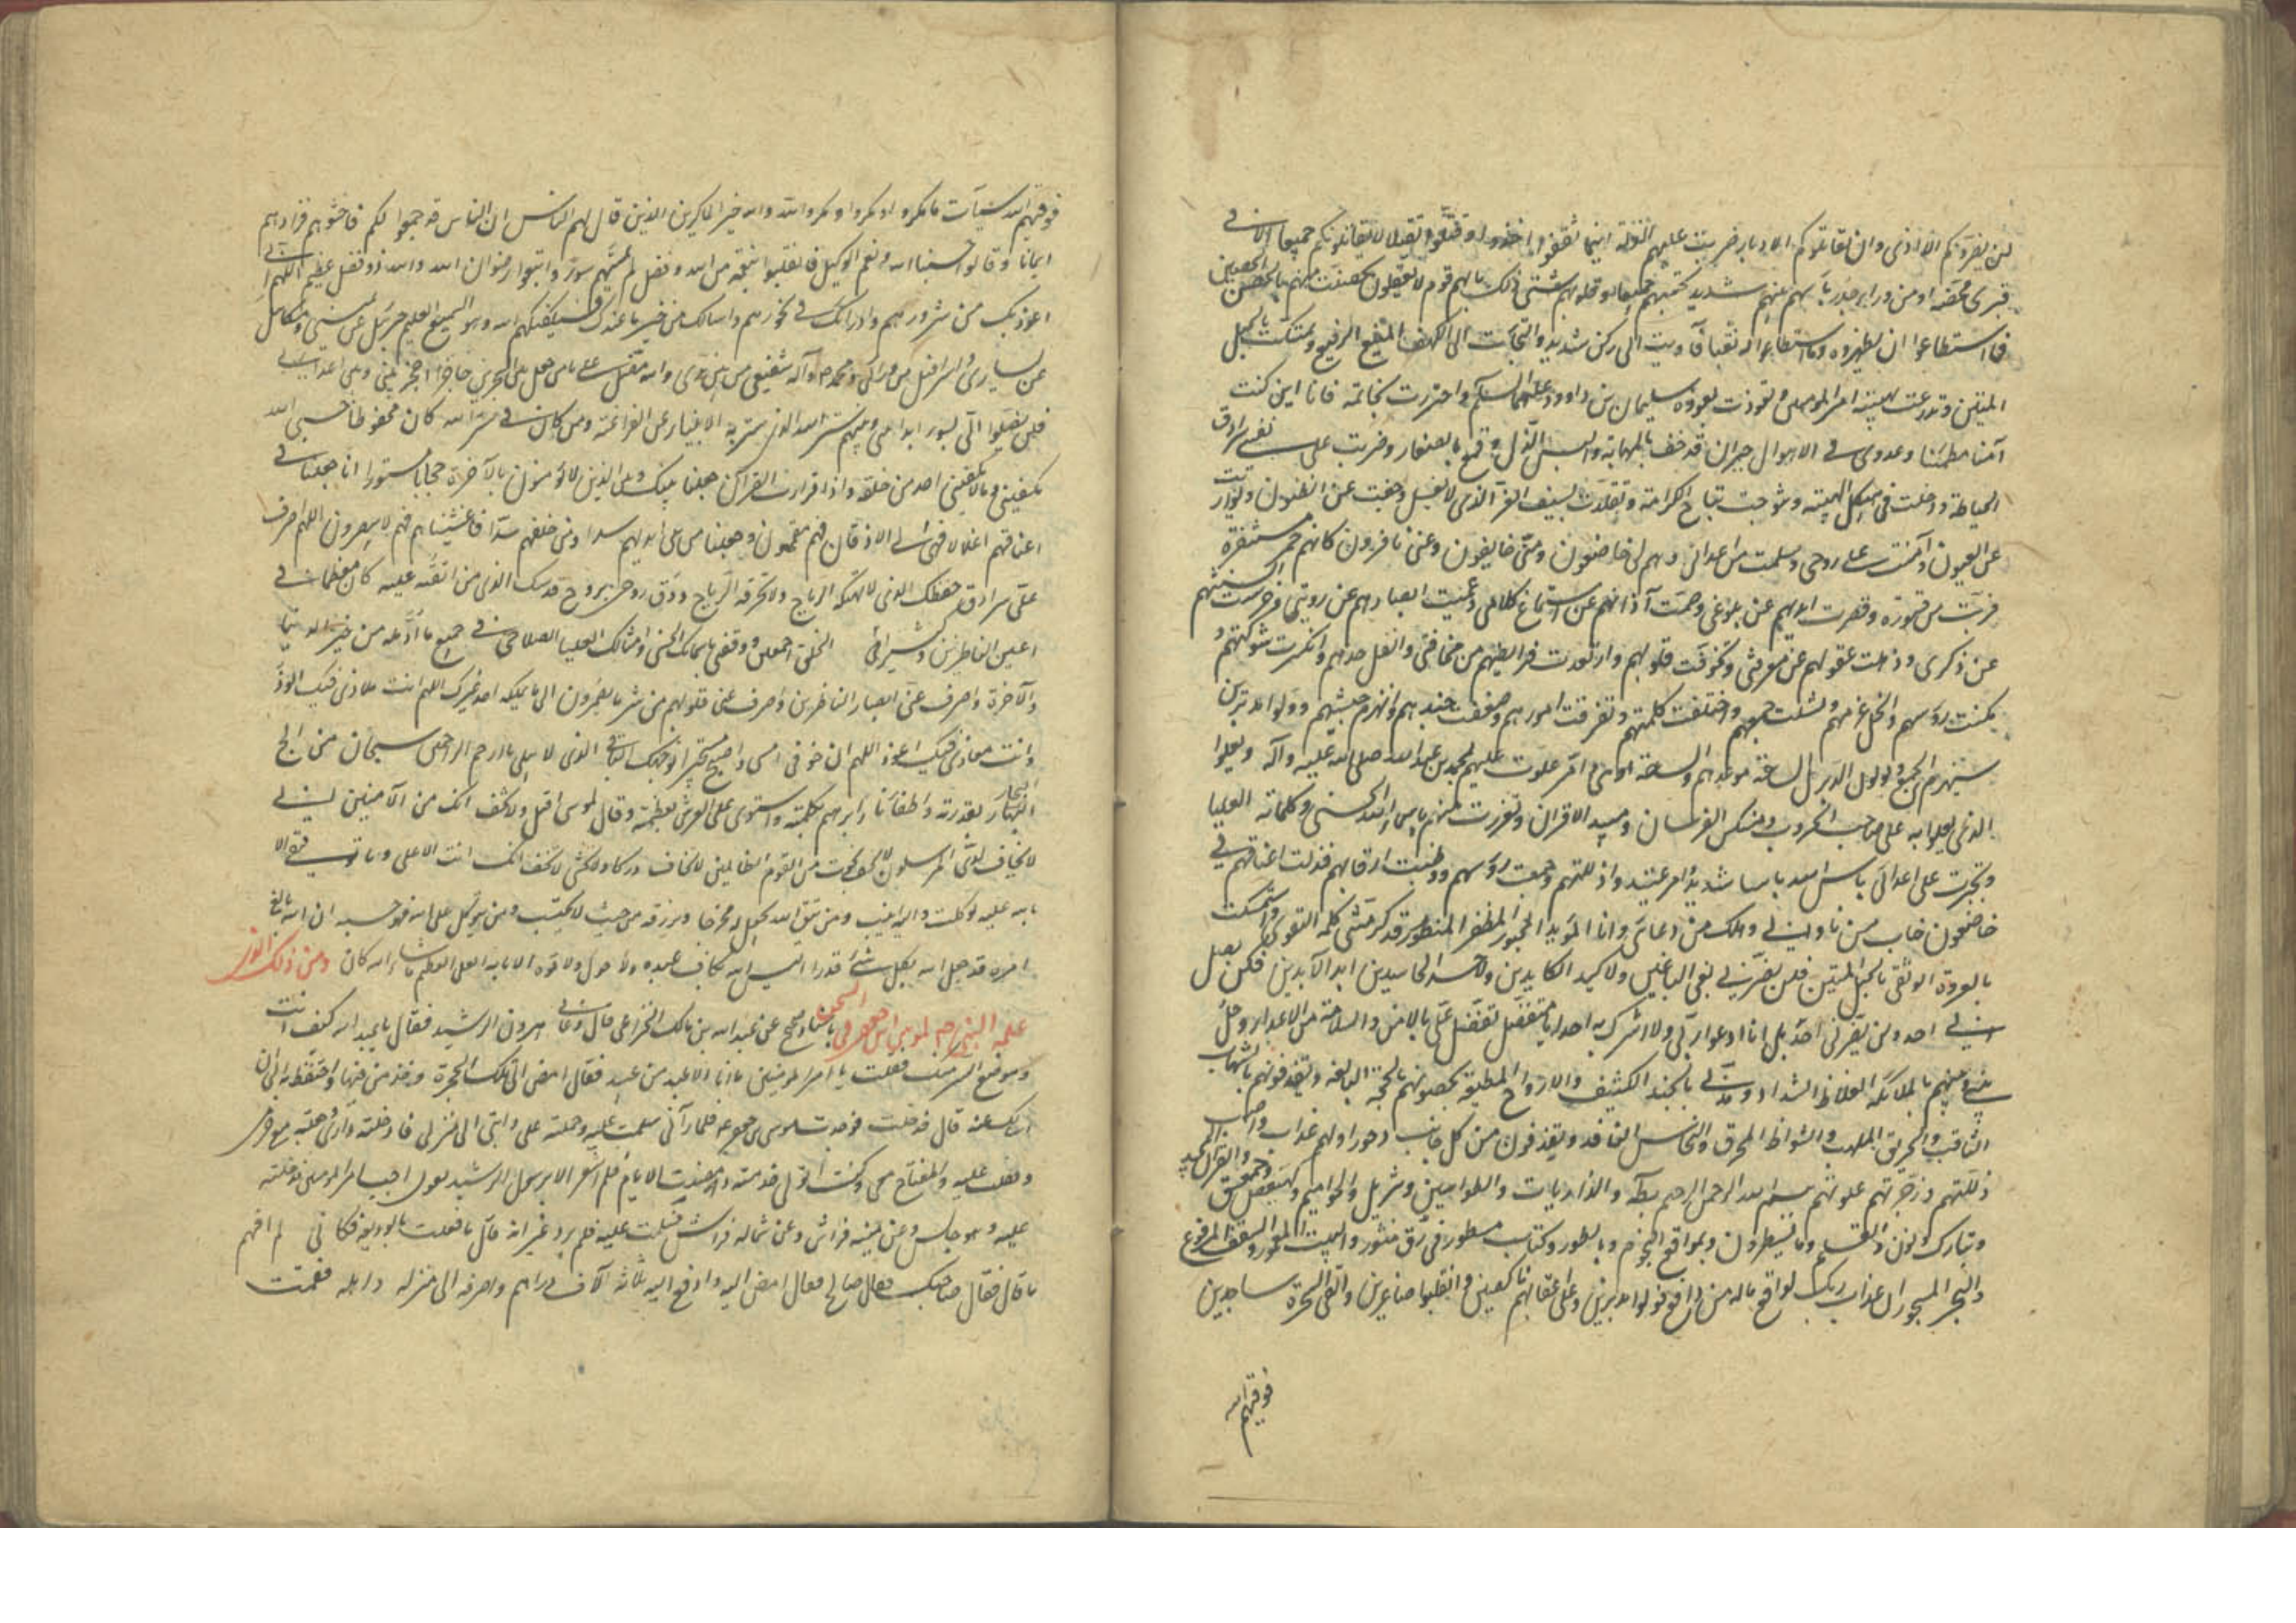 لن يضروكم الا اذى وان يقاتلوكم الادبار ضربت عليهم الذلة اينما ثقفوا اخذوا وقتلوا تقتيلا لا يقاتلونكم جميعا الا في
قرى محصنة او من وراء جدر باسهم بينهم شديد تحسبهم جميعا وقلوبهم شتى ذلك بانهم قوم لا يعقلون تحصنت منهم بالحصن الحصين
فما استطاعوا ان يظهروه وما استطاعوا له نقبا فآويت الى ركن شديد والتجات الى الكهف المنيع الرفيع وتمسكت بالحبل
المتين وتدرعت بهيبة امير المومنين وتعوذت بعوذة سليمان بن داوود عليهما السلام واحترزت بخاتمه فانا اين كنت
آمنا مطمئنا وعدوى في الاهوال حيران قد حف بالمهابة والبس الذل وقمع بالصغار وضربت على نفسي سرادق
الحياطة ودخلت في هيكل الهيبة وتتوجت بتاج الكرامة وتقلدت بسيف العز الذى لا يفل وخفيت عن الظنون وتواريت
عن العيون وآمنت على روحى وسلمت من اعدائى وهم لى خاضعون ومنى خايفون وعنى نافرون كانهم حمر مستنفرة
فرت من قسورة وقصرت ايديهم عن بلوغى وصمت آذانهم عن استماع كلامى وعميت ابصارهم عن رويتى وخرست السنتهم
عن ذكرى وذهلت عقولهم عن معرفتى وتخوفت قلوبهم وارتعدت فرايصهم من مخافتى وانفل حدهم وانكسرت شوكتهم و
نكست روسهم وانحل عزمهم وتشتت جمعهم واختلفت كلمتهم وتفرقت امورهم وضعف جندهم وانهزم جيشهم وولوا مدبرين
سيهزم الجمع ويولون الدبر بل الساعة موعدهم والساعة ادهى وامر علوت عليهم بمحمد بن عبد الله صلى الله عليه وآله وبعلو
الذى يعلو به على صاحب الحروب ومنكس الفرسان ومبيد الاقران وتعززت منهم باسماء الله الحسنى وكلماته العليا
وتجهزت على اعدائى بباس الله باسا شديدا وامر عتيد واذللتهم وجمعت روسهم ووطيت ارقابهم فظلت اعناقهم لى
خاضعون خاب من ناوانى وهلك من عادانى وانا المويد المحبور المظفر المنصور قد كرمتنى كلمة التقوى واستمسكت
بالعروة الوثقى بالحبل المتين فلن يضرنى بغى الباغين ولا كيد الكايدين ولا حسد الحاسدين ابد الآبدين فلن يصل
الى احد ولن يضرنى احد بل انا ادعوا ربى ولا اشرك به احدا يا متفضل تفضل على بالامن والسلامة من الاعداء وحل
بينى وبينهم بالملائكة الغلاظ الشداد ومدنى بالجند الكثيف والارواح المطيعة يحصبونهم بالحجة البالغة ويقذفونهم بالشهاب
الثاقب والحريق الملهب والشواظ المحرق والنحاس النافذ ويقذفون من كل جانب دحورا ولهم عذاب واصب
ذللتهم وزجرتهم وعلوتهم ببسم الله الرحمن الرحيم بطه والذاريات والطواسين وتنزيل والحواميم وكهيعص وحمعسق والقرآن المجيد
وتبارك ونون والقلم وما يسطرون وبمواقع النجوم وبالطور وكتاب مسطور في رق منشور والبيت المعمور والسقف المرفوع
والبحر المسجور ان عذاب ربك لواقع ماله من دافع فولوا مدبرين وعلى اعقابهم ناكصين وانقلبوا صاغرين والقى السحرة ساجدين
فوقيهم الله
فوقيهم الله سيئات ما مكروا ومكروا ومكر الله والله خير الماكرين الذين قال لهم الناس ان الناس قد جمعوا لكم فاخشوهم فزادهم
ايمانا وقالوا حسبنا الله ونعم الوكيل فانقلبوا بنعمة من الله وفضل لم يمسسهم سوء واتبعوا رضوان الله والله ذو فضل عظيم اللهم انى
اعوذ بك من شرورهم وادرا بك في نحورهم واسالك من خير ما عندك فسيكفيكهم الله وهو السميع العليم جبرئيل عن يمينى وميكائيل
عن يسارى واسرافيل من ورائى ومحمد وآله شفيعى من بين يدى والله مظل على يا من جعل بين البحرين حاجزا احجز بينى وبين اعدائى
فلن يصلوا الى بسوء ابدا بينى وبينهم ستر الله الذى ستر به الانبياء عن الفراعنة ومن كان في ستر الله كان محفوظا حسبى الله
يكفينى ما لا يكفينى احد من خلقه واذا قرات القرآن جعلنا بينك وبين الذين لا يؤمنون بالآخرة حجابا مستورا انا جعلنا في
اعناقهم اغلالا فهى الى الاذقان فهم مقمحون وجعلنا من بين ايديهم سدا ومن خلفهم سدا فاغشيناهم فهم لا يبصرون اللهم اضرب
على سرادق حفظك الذى لا تهتكه الرياح ولا تخرقه الرماح ووق روحى بروح قدسك الذى من القيته عليه كان معظما في
اعين الناظرين وكبيرا في الخلق اجمعين ووفقنى باسمائك الحسنى وامثالك العليا لصلاحى في جميع ما أؤمله من خير الدنيا
والآخرة واصرف عنى ابصار الناظرين واصرف عنى قلوبهم من شر ما يضمرون الى ما لا يملكه احد غيرك اللهم انت ملاذى فبك الوذ
وانت معاذى فبك اعوذ اللهم ان خوفى امسى واصبح مستجيرا بوجهك الباقى الذى لا يبلى يا ارحم الراحمين سبحان من الج
البحار بقدرته واطفا نار ابراهيم بكلمته واستوى على العرش بعظمته وقال لموسى اقبل ولا تخف انك من الآمنين انى
لا يخاف لدى المرسلون لا تخف نجوت من القوم الظالمين لا تخاف دركا ولا تخشى لا تخف انك انت الاعلى وما توفيقى الا
بالله عليه توكلت واليه انيب ومن يتق الله يجعل له مخرجا ويرزقه من حيث لا يحتسب ومن يتوكل على الله فهو حسبه ان الله بالغ
امره قد جعل الله لكل شئ قدرا اليس الله بكاف عبده ولا حول ولا قوة الا بالله العلى العظيم ما شاء الله كان ومن ذلك الذى
علمه النبى ص لموسى بن جعفر في السجن باسناد صحيح عن عبد الله بن مالك الخزاعى قال دعانى هرون الرشيد فقال يا عبد الله كيف انت
وموضع السر منك فقلت يا امير المومنين ما انا الا عبد من عبيدك فقال امض الى تلك الحجرة وخذ من فيها واحتفظ به الى ان
اسالك عنه قال فدخلت فوجدت موسى بن جعفر فلما رآنى سلمت عليه وحملته على دابتى الى منزلى فادخلته دارى وجعلته مع حرمى
وقفلت عليه والمفتاح معى وكنت اتولى خدمته ومضت الايام فلم اشعر الا برسول الرشيد يقول اجب امير المومنين فدخلت
عليه وهو جالس وعن يمينه فراش وعن شماله فراش فسلمت عليه فلم يرد غير انه قال ما فعلت بالوديعة فكانى لم افهم
ما قال فقال ما فعل صاحبك فقال صالح فقال امض اليه وادفع اليه ثلاثة آلاف دراهم واصرفه الى منزله واهله فقمت